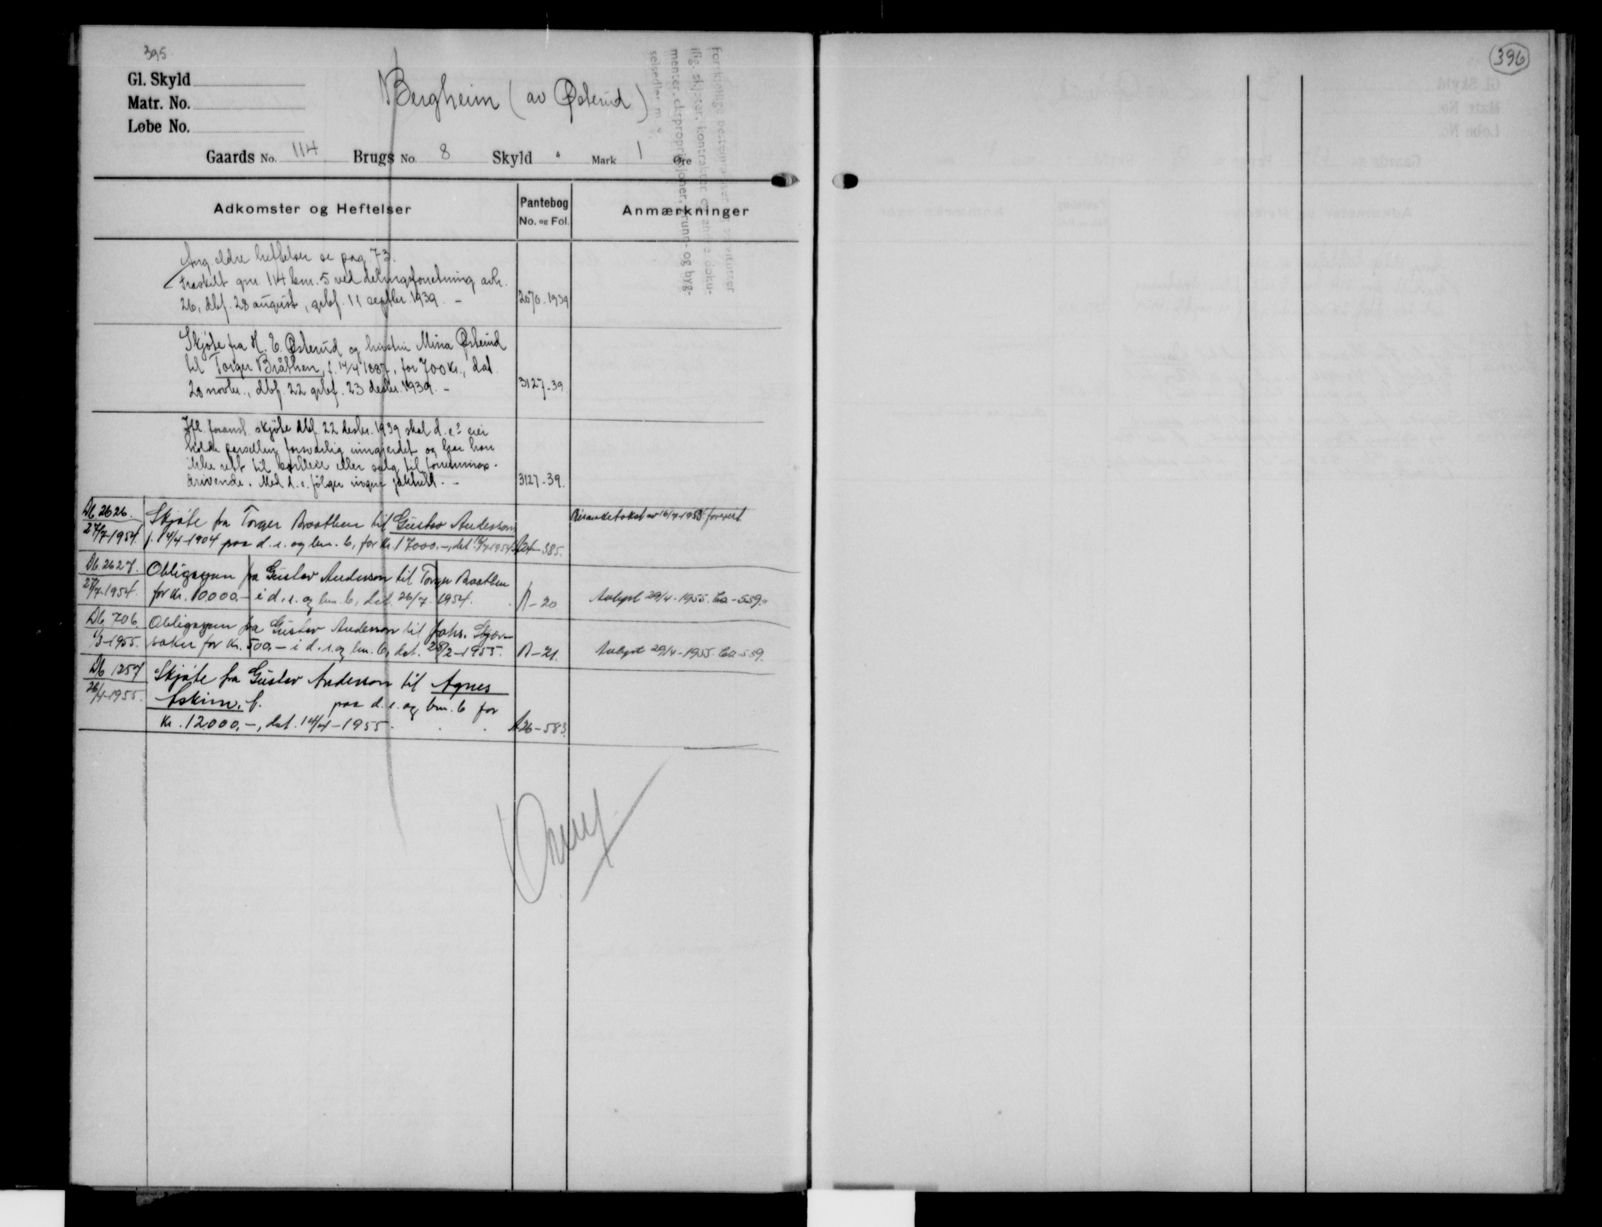 395
Gl. Skyld
Matr. No.
Løbe No.
Bergheim (av Østerud)
Gaards No. 114 Brugs No 8 Skyld " Mark 1 Øre
Adkomster og Heftelser
Pantebog
No. og Fol.
Anmærkninger
Ang eldre heftelser se pag. 73.
Fraskilt gnr. 114 bnr. 5 ved delingsforretning avh.
26, dbf. 28 august, grbf. 11 septbr. 1939. – 2070. 1939
Skjøte fra H. E. Østerud og hustru Mina Østerud
til Torger Bråthen, f. 14/4 1887, for 700 kr., dat.
20 novbr., dbf. 22 grbf. 23 desbr. 1939. – 3127-39
Ifl. foranst. skjøte dbf. 22 desbr. 1939 skal d. e.s eier
holde parsellen forsvarlig inngjerdet og har han
ikke rett til bortleie eller salg til
drivende. Med d. e. følger ingen jaktrett. – 3127-39.
Db. 2626.
27/7-1954.
Skjøte fra Torger Braathen til Gustav Anderson
f. 14/4-1904 paa d. e. og bnr. 6, for kr. 17000.-, dat. 1954. A24-385.
Db. 2627.
27/7-1954.
Obligasjon fra Gustav Anderson til Torger Braathen
for kr. 10000.– i d. e. og bnr. 6, dat. 26/7 1954. B-20 Avlyst 29/4-1955. Ca-559.
Db. 706
/3-1955.
Obligasjon fra Gustav Anderson til Johs.
for kr. 500,– i d. e. og bnr. 6, dat. 28/2-1955. B-21. Avlyst 29/4-1955. Ca-559.
Db. 1257
26/4-1955.
Skjøte fra Gustav Anderson til Agnes
Askim, f. paa d. e. og bnr. 6 for
kr. 12000,–, dat. 14/4-1955. A26-583.
396